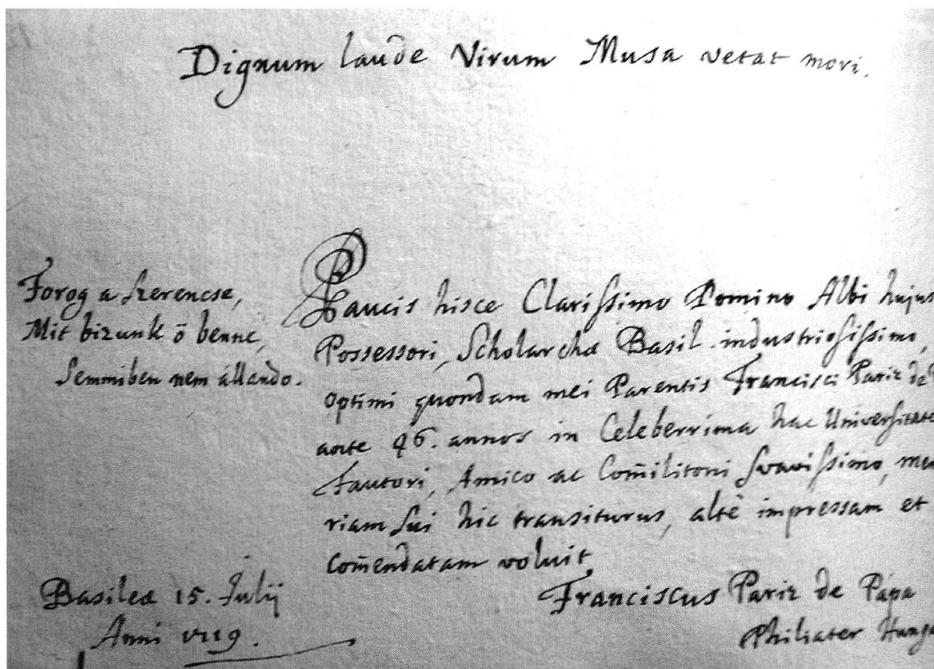 Dignum laude Virum Musa vetat mori.
Forog a szerencse,
Mit bizunk ö benne,
Semmiben nem állando.
Paucis hisce Clarissimo Domino Albi hujus
Possessori, Scholarchæ Basil. industriosissimo,
optimi quondam mei Parentis Francisci Pariz de
ante 46. annos in Celeberrima hac Universitate
Fautori, Amico ac Com̃ilitoni Suavissimo, me
riam Sui hic transiturus, altè impressam et
com̃endatam voluit
Basileæ 15. Julij
Anni 1719.
Franciscus Pariz de Pápa
Philiater Hunga